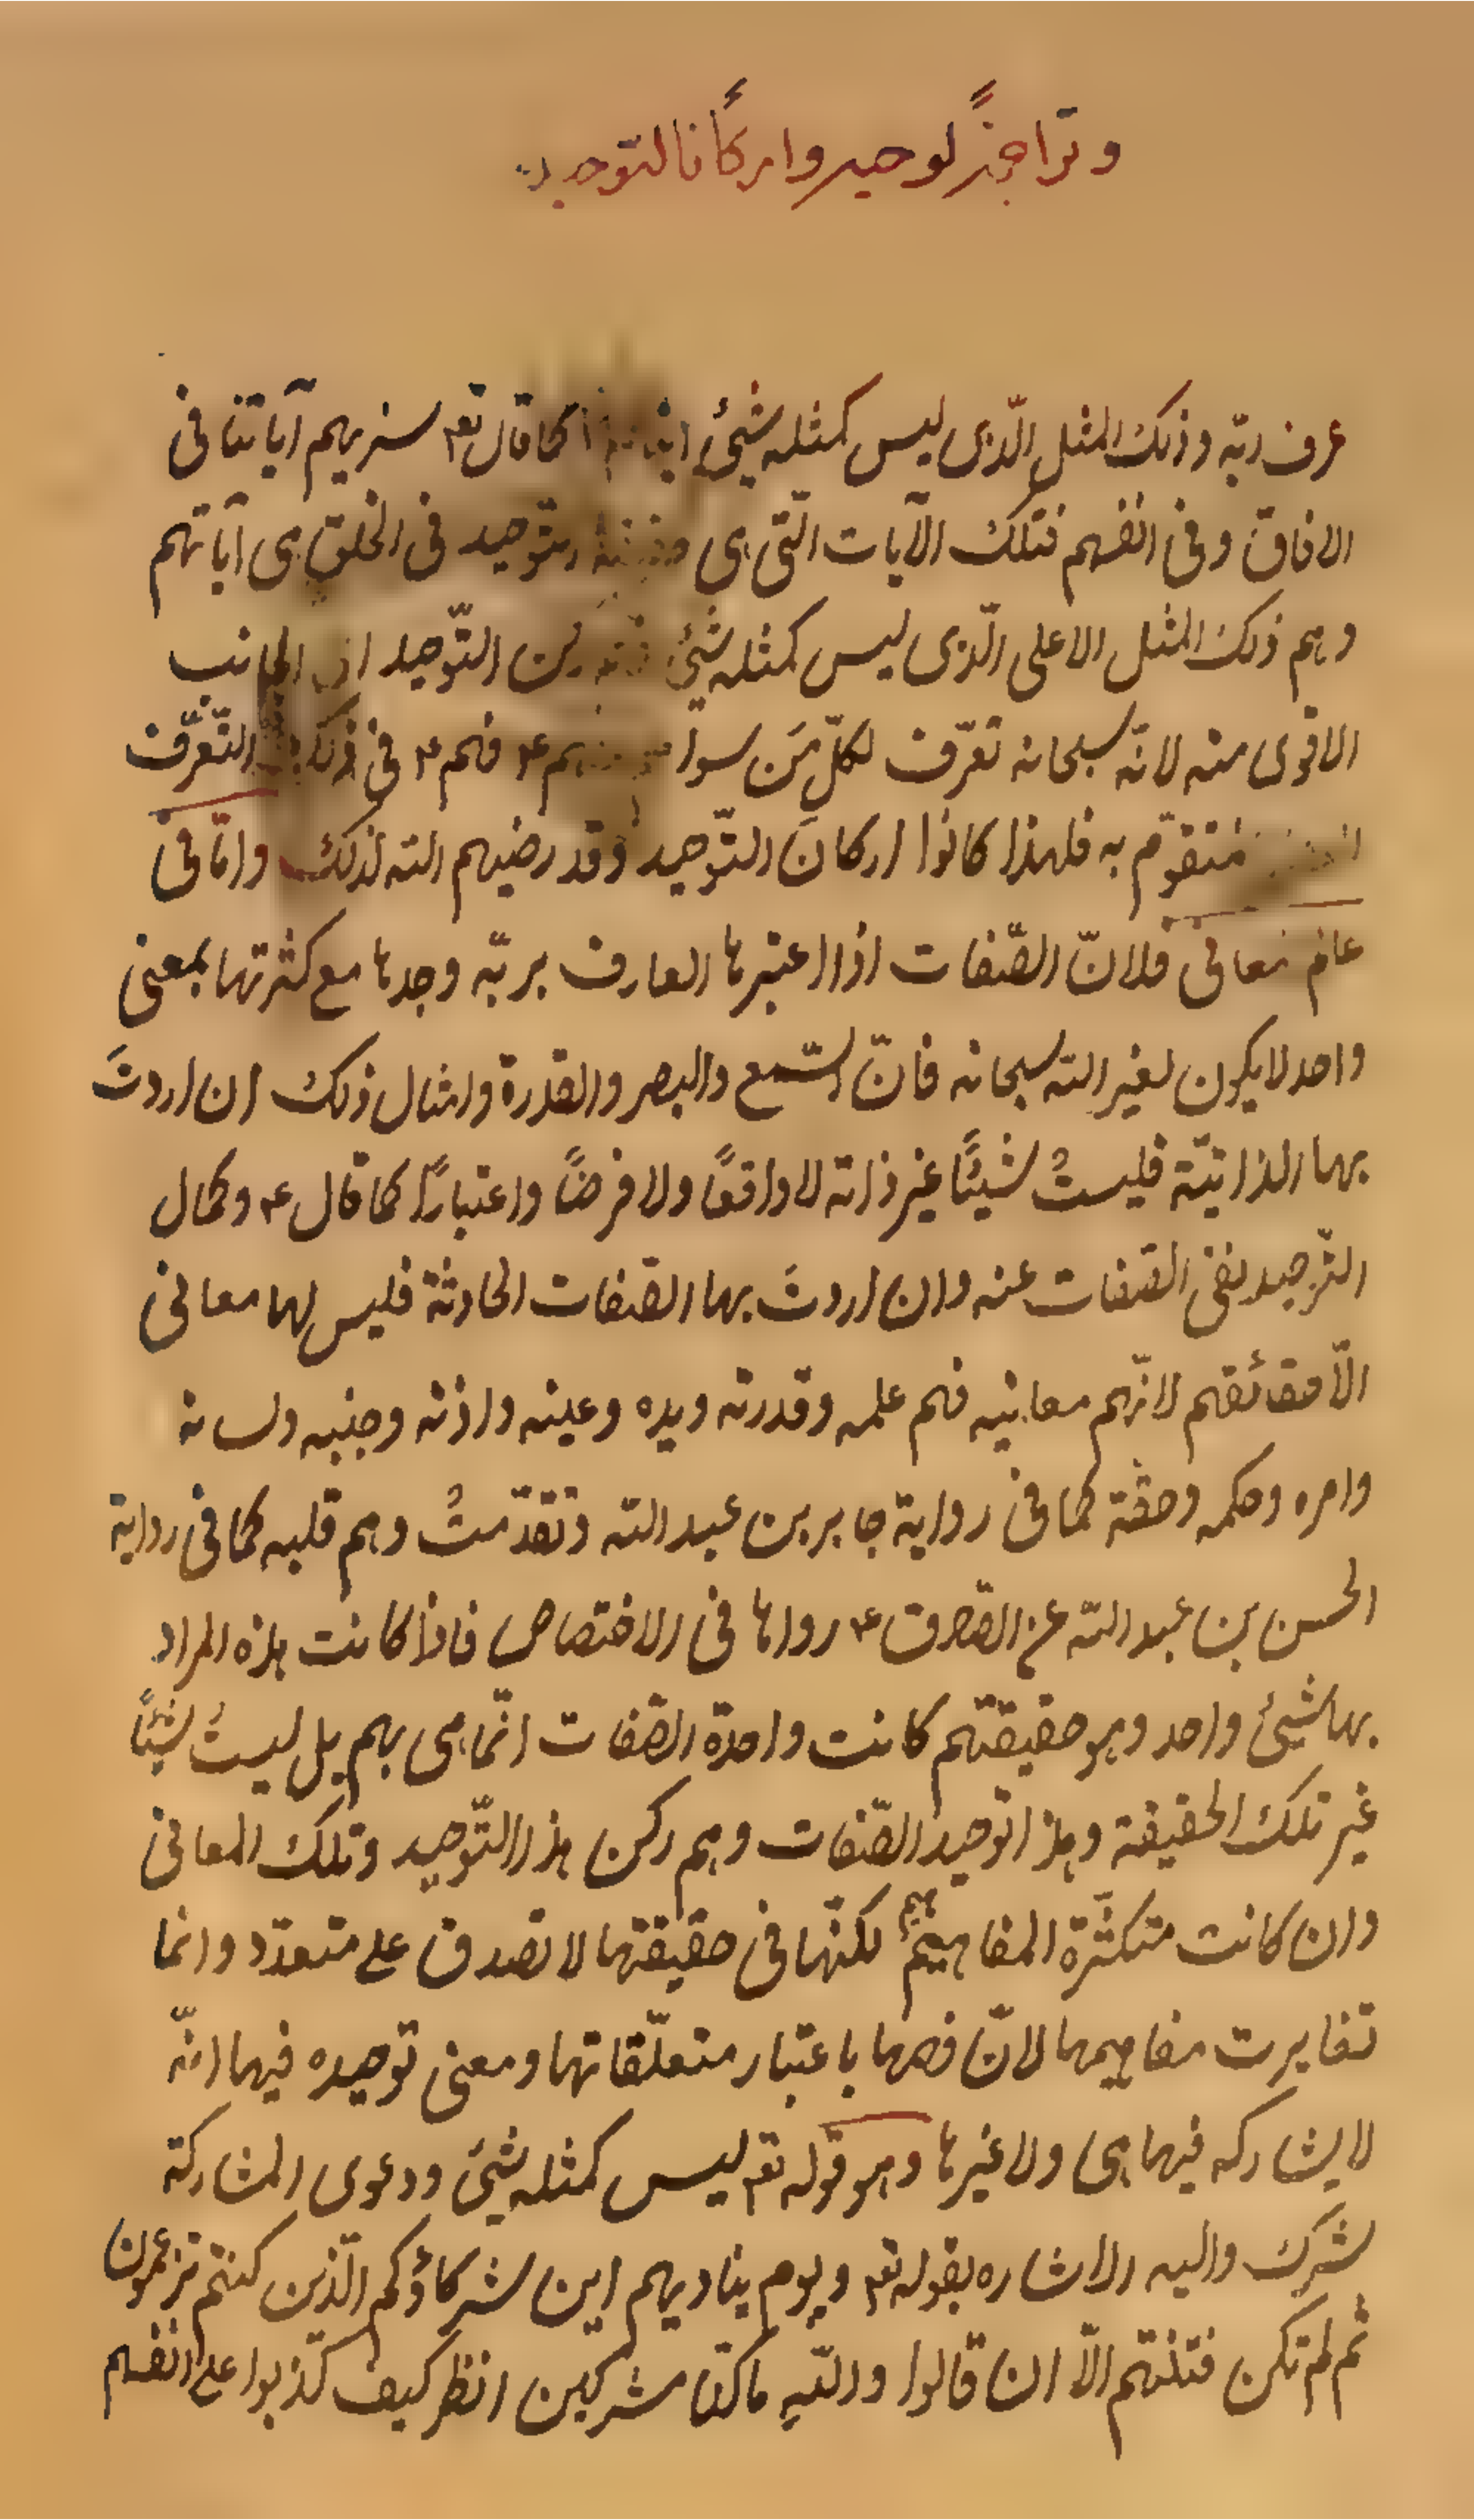 وتراجمةً لوحيه واركانًا لتوحيده
عرف ربّه وذلك المثل الّذى ليس كمثله شئ كما قال تع سنريهم آياتنا فى
الافاق وفى انفسهم فتلك الآيات الّتى هى التّوحيد فى الخلق هى آياتهم
وهم ذلك المثل الاعلى الّذى ليس كمثله شئ ركن التّوحيد الجانب
الاقوى منه لانّه سبحانه تعرّف لكلّ مَن سواه بهم ع فهم ع فى ذلك التّعرّف
متقوّم به فلهذا كانوا اركان التّوحيد وقد رضيهم الله لذلك وامّا فى
عالم معانى فلانّ الصّفات اذا اعتبرها العارف بربّه وجدها مع كثرتها بمعنى
واحد لا يكون لغير الله سبحانه فانّ السّمع والبصر والقدرة وامثال ذلك ان اردتَ
بها الذاتيّة فليستْ شيئًا غير ذاته لا واقعًا ولا فرضًا واعتبارًا كما قال ع وكمال
التّوحيد نفى الصّفات عنه وان اردتَ بها الصّفات الحادثة فليس لها معانى
الّا حقائقهم لانّهم معانيه فهم علمه وقدرته ويده وعينه واذنه وجنبه ولسانه
وامره وحكمه وحقّه كما فى رواية جابر بن عبد الله وتقدّمتْ وهم قلبه كما فى رواية
الحسن بن عبد الله عن الصّادق ع رواها فى الاختصاص فاذا كانت هذه المراد
بها شئ واحد وهو حقيقتهم كانت واحدة الصّفات انّما هى بهم بل ليستْ شيئًا
غير تلك الحقيقة وهذا توحيد الصّفات وهم ركن هذا التّوحيد وتلك المعانى
وان كانت متكثّرة المفاهيم لكنّها فى حقيقتها لا تصدق على متعدّد وانما
تغايرت مفاهيمها لانّ فهمها باعتبار متعلّقاتها ومعنى توحيده فيها انّه
لا يشاركه فيها هى ولا غيرها وهو قوله تع ليس كمثله شئ ودعوى المشاركة
شرك واليه الاشاره بقوله تع ويوم يناديهم اين شركاؤكم الّذين كنتم تزعمون
ثم لم تكن فتنتهم الّا ان قالوا واللهِ ما كنّا مشركين انظر كيف كذبوا على انفسهم